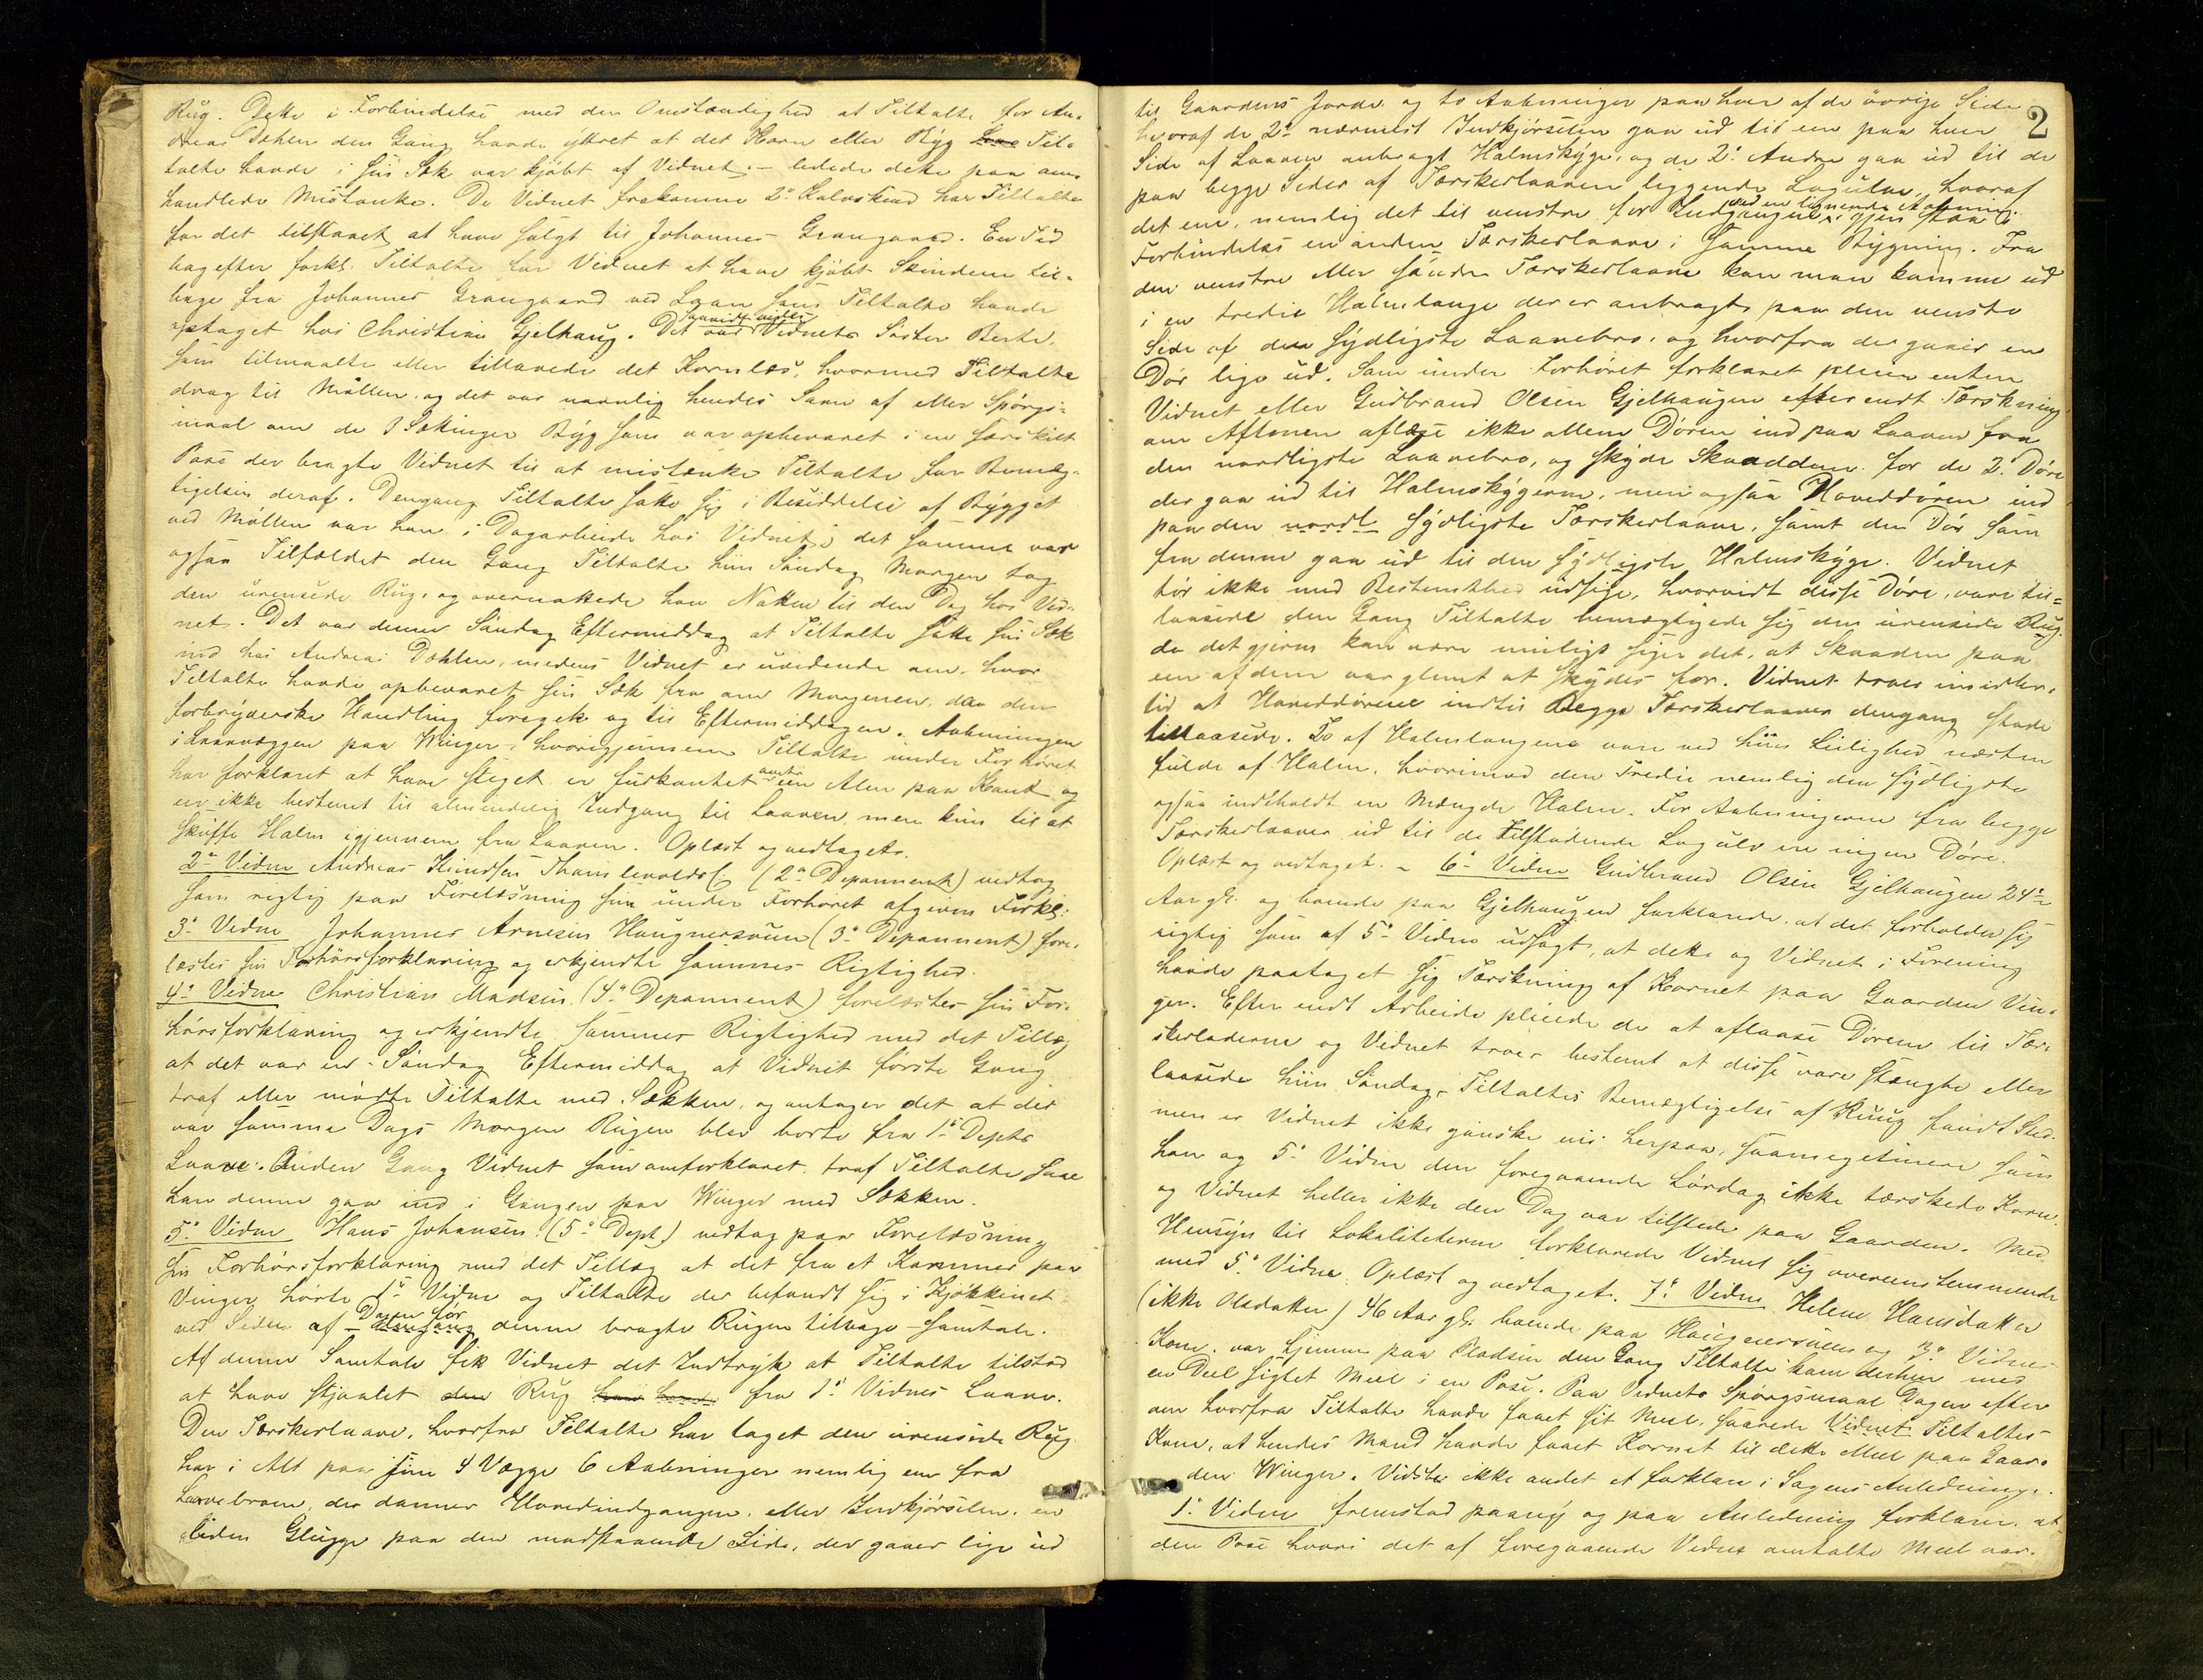 Rug. Dette i Forbindelse med den Omstændighed at Tiltalte for An-
dreas Dahlen den Gang havde ÿttret at det Korn eller Byg Til-
talte havde i sin Sæk var kjøbt af Vidnet; – ledede dette paa om-
handlede Mistanke. De Vidnet frakomne 2de Kalvskind har Tiltalte
for det tilstaaet at have solgt til Johannes Grangaard. En Tid
bagefter forkl. Tiltalte for Vidnet at have kjøbt Skindene til-
bage fra Johannes Grangaard ved Laan som Tiltalte havde
optaget hos Christian Gjelhaug. Det var saavidt vides Vidnets Søster Berte,
som tilmaalte eller tillavede det Kornlæs, hvormed Tiltalte
drog til Møllen, og det var navnlig hendes Savn af eller Spørgs-
maal om de 3 Sættinger Byg som var opbevaret i en særskilt
Pose der bragte Vidnet til at mistænke Tiltalte for Bemæg-
tigelsen deraf. Dengang Tiltalte satte sig i Besiddelse af Bygget
ved Møllen var han i Dagarbeide hos Vidnet; det samme var
ogsaa Tilfældet den Gang Tiltalte hiin Søndag Morgen tog
den urensede Rug, og overnattede han Natten til den Dag hos Vid-
net. Det var denne Søndag Eftermiddag at Tiltalte satte sin Sæk
ind hos Andreas Dahlen, medens Vidnet er uvidende om, hvor
Tiltalte havde opbevaret sin Sæk fra om Morgenen, da den
forbryderske Handling foregik og til Eftermiddagen. Aabningen
i Laavvæggen paa Winger, hvorigjennem Tiltalte under Forhøret
har forklaret at have steget er fiirkantet omtr een Alen paa Kant og
er ikke bestemt til almindelig Indgang til Laaven, men kun til at
skuffe Halm igjennem fra Laaven. Oplæst og vedtaget.
2det Vidne Andreas Knudsen (2det Deponent) vedtog
som rigtig paa Forelæsning sin under Forhøret afgivne Forkl:
3die Vidne Johannes Arnesen Haugnersveen (3die Deponent) fore-
læstes sin Forhørsforklaring og erkjendte sammes Rigtighed.
4de Vidne Christian Madsen (4de Deponent) forelæstes sin For-
hørsforklaring og erkjendte sammes Rigtighed med det Tillæg
at det var en Søndag Eftermiddag at Vidnet første Gang
traf eller mødte Tiltalte med Sækken, og antager det at det
var samme Dags Morgen Rugen blev borte fra 1ste Depts
Laave. Anden Gang Vidnet som omforklaret traf Tiltalte saae
han denne gaa ind i Gangen paa Winger med Sækken.
5te Vidne Hans Johansen (5te Dept) vedtog paa Forelæsning
sin Forhørsforklaring med det Tillæg at det fra et Kammer paa
Vinger hørte 1ste Vidne og Tiltalte der befandt sig i Kjøkkenet
ved Siden af – Dagen før denne bragte Rugen tilbage – samtale.
Af denne Samtale fik Vidnet det Indtryk at Tiltalte tilstod
at have stjaalet den Rug fra 1ste Vidnes Laave.
Den Tærskerlaave, hvorfra Tiltalte har taget den urensede Rug
har i Alt paa sine 4 Vægge 6 Aabninger nemlig een fra
Laavebroen, der danner Hovedindgangen, eller Indkjørselen, en
liden Glugge paa den modstaaende Side, der gaaer lige ud
2
til Gaardens Jorde og to Aabninger paa hver af de øvrige Sider
hvoraf de 2de nærmest Indkjørselen gaa ud til een paa hver
Side af Laaven anbragt Halmskÿge, og de 2de Andre gaa ud til de
paa begge Sider af Tærskerlaaven liggende Laegulve, hvoraf
det ene, nemlig det til venstre for Indgangen, ved en lignende Aabning igjen staar i
Forbindelse en anden Tærskerlaave i samme Bygning. Fra
den venstre eller søndre Tærskerlaave kan man komme ud
i en tredie Halmlange der er anbragt paa den venstre
Side af den sydligste Laavebro, og hvorfra der gaaer en
Dør lige ud. Som under Forhøret forklaret pleier enten
Vidnet eller Gudbrand Olsen Gjelhaugen efter endt Tærskning
om Aftenen aflaase ikke allene Døren ind paa Laaven fra
den nordligste Laavebro, og skyde Skaadden for de 2 Døre
der gaa ud til Halmskÿgerne, men ogsaa Hoveddøren ind
paa den nordl sydligste Tærskerlaave, samt den Dør som
fra denne gaa ud til den sydligste Halmskÿge. Vidnet
tør ikke med Bestemthed udsige, hvorvidt disse Døre vare til-
laasede den Gang Tiltalte bemægtigede sig den urensede Rug,
da det gjerne kan være muligt siger det, at Skaaden paa
een af dem var glemt at skydes for. Vidnet troer imidler-
tid at Hoveddørene indtil Begge Tærskerlaaver dengang stode
tillaasede. To af Halmlangene vare ved hiin Leilighed næsten
fulde af Halm, hvorimod den Tredie nemlig den sydligste
ogsaa indeholdt en Mængde Halm. For Aabningerne fra begge
Tærskerlaaver ud til de tilstødende Lagulv ere ingen Døre.
Oplæst og vedtaget. – 6te Vidne Gudbrand Olsen Gjelhaugen 24
Aar gl. og boende paa Gjelhaugen forklarede, at det forholder sig
rigtig som af 5te Vidne udsagt, at dette og Vidnet i Forening
havde paataget sig Tærskning af Kornet paa Gaarden Vin-
ger. Efter endt Arbeide pleiede de at aflaase Dørene til Tær-
skerladerne og Vidnet troer bestemt at disse vare stængte eller
laasede hiin Søndag, Tiltaltes Bemægtigelse af Ruug fandt Sted
men er Vidnet ikke ganske vis herpaa, saameget mere som
han og 5te Vidne den foregaaende Lørdag ikke tærskede Korn,
og Vidnet heller ikke den Dag var tilstede paa Gaarden. Med
Hensyn til Lokaliteterne forklarede Vidnet sig overeenstemmende
med 5te Vidne. Oplæst og vedtaget. 7de Vidne Helene Hansdatter
(ikke Olsdatter) 46 Aar gl. boende paa Haugnersveen og 3die Vidnes
Kone, var hjemme paa Pladsen den Gang Tiltalte kom derhen med
en Deel sigtet Meel i en Pose. Paa Vidnets Spørgsmaal Dagen efter
om hvorfra Tiltalte havde faaet sit Meel, svarede Vidnet Tiltaltes
Kone, at hendes Mand havde faaet Kornet til dette Meel paa Gaar-
den Winger. Vidste ikke andet at forklare i Sagens Anledning.
1ste Vidne fremstod paany og paa Anledning forklarer, at
den Pose hvori det af foregaaende Vidne omtalte Meel var.